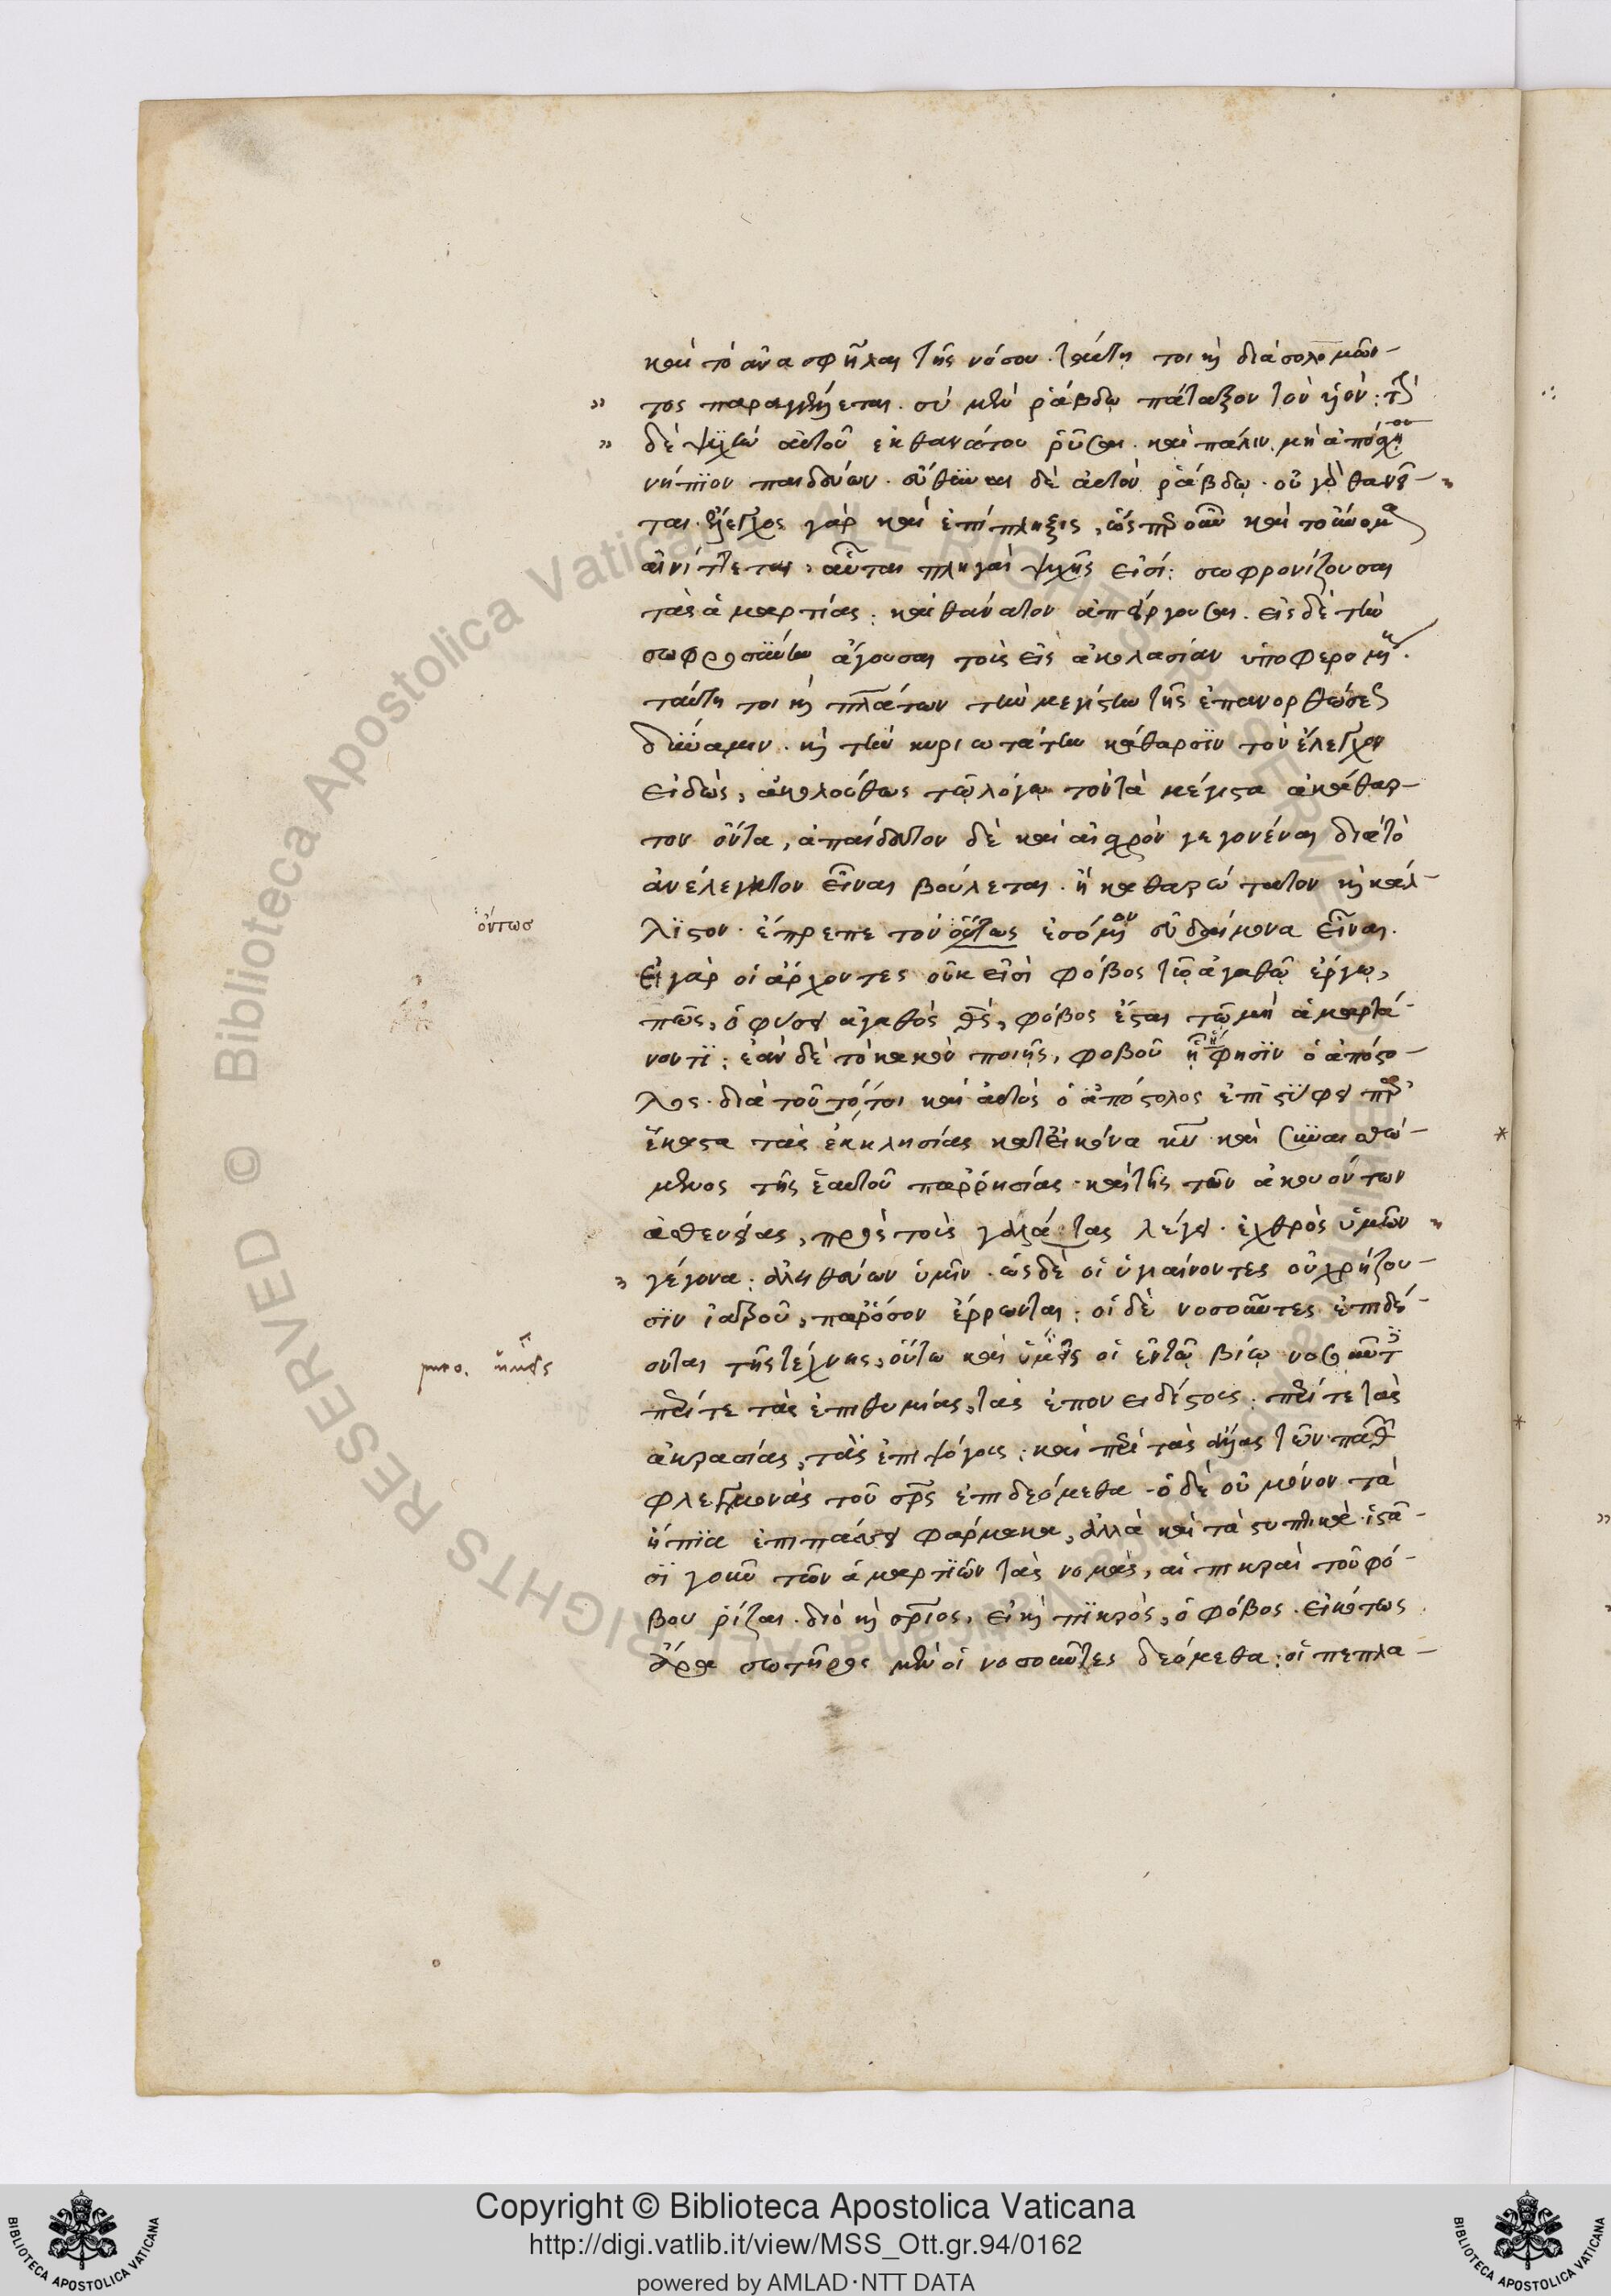 καὶ τὸ ἀνασφῆλαι τῆς νόσου. ταύτη τοι κὶ διὰ σολομῶν-
τος παραγγέλλεται. σὺ μὲν ῥάβδω πάταξον τὸν υἱόν: τὴν
δὲ ψυχὴν αὐτοῦ ἐκ θανάτου ῥῦσαι. καὶ πάλιν. μὴ ἀπόσχου
νήπϊον παιδεύων. εὔθυναι δὲ αὐτὸν ῥάβδω. οὐ γὰρ θανεῖ-
ται. ἔλεγχος γὰρ καὶ ἐπίπληξις, ὥσπερ οὖν καὶ τοὔνομα
αἰνίττεται, αὗται πληγαὶ ψυχῆς εἰσί: σωφρονίζουσαι
τὰς ἁμαρτίας: καὶ θάνατον ἀπείργουσαι. εἰς δὲ τὴν
σωφροσύνην ἄγουσαι τοὺς εἰς ἀκολασίαν ὑποφερομένους.
ταύτη τοι κὶ πλάτων τὴν μεγίστην τῆς ἐπανορθώσεως
δύναμιν. κὶ τὴν κυριωτάτην κάθαρσϊν τὸν ἔλεγχον
εἰδὼς, ἀκολούθως τῷ λόγῳ τὸν τὰ μέγιστα ἀκάθαρ-
τον ὄντα, ἀπαίδευτον δὲ καὶ αἰσχρὸν γεγονέναι διὰ τὸ
ἀνέλεγκτον εἶναι βούλεται. ἧ καθαρώτατον κὶ κάλ-
λϊστον. ἔπρεπε τὸν οὕτως ἐσόμενον εὐδαίμονα εἶναι.
ὄντωσ
Εἰ γὰρ οἱ ἄρχοντες οὐκ εἰσὶ φόβος τῷ ἀγαθῷ ἔργῳ,
πῶς, ὁ φύσει ἀγαθὸς θς, φόβος ἔσται τῷ μὴ ἁμαρτά-
νοντϊ: ἐὰν δὲ τὸ κακὸν ποιῆς, φοβοῦ φησϊν ὁ ἀπόστο-
λος. διὰ τοῦτό τοι καὶ αὐτὸς ὁ ἀπόστολος ἐπιστύφει παρ'
ἕκαστα τὰς ἐκκλησίας κατ εἰκόνα κυ καὶ συναισθό-
μενος τῆς ἑαυτοῦ παῤῥησίας. καὶ τῆς τῶν ἀκουόντων
ἀσθενείας, πρὸς τοὺς γαλάτας λέγει. ἐχθρὸς ὑμῶν
γέγονα: ἀληθεύων ὑμῖν. ὡς δὲ οἱ ὑγιαίνοντες οὐ χρήζου-
σϊν ἰατροῦ, παρόσον ἔρρωνται: οἱ δὲ νοσοῦντες ἐπιδέ-
ονται τῆς τέχνης, οὕτω καὶ ὑμεῖς οἱ ἐν τῷ βίῳ νοσοῦντες
ἡμεῖς
περί τε τὰς ἐπιθυμίας, τὰς ἐπονειδίστους: περί τε τὰς
ἀκρασίας, τὰς ἐπιψόγους: καὶ περὶ τὰς ἄλλας τῶν παθῶν
φλεγμονὰς τοῦ σρς ἐπιδεόμεθα. ὁ δὲ οὐ μόνον τὰ
ἤπϊα ἐπιπάσσει φάρμακα, ἀλλὰ καὶ τὰ στυπτικὰ. ἱστᾶ-
σϊ γοῦν τῶν ἁμαρτϊῶν τὰς νομὰς, αἱ πικραὶ τοῦ φό-
βου ῥίζαι. διὸ κὶ σριος, εἰ κὶ πϊκρὸς, ὁ φόβος. εἰκότως
ἄρα σωτῆρος μὲν οἱ νοσοῦντες δεόμεθα: οἱ πεπλα-
Copyright © Biblioteca Apostolica Vaticana
http://digi.vatlib.it/view/MSS_Ott.gr.94/0162
powered by AMLAD·NTT DATA
BIBLIOTECA APOSTOLICA VATICANA
BIBLIOTECA APOSTOLICA VATICANA
© Biblioteca Apostolica Vaticana ALL RIGHTS RESERVED